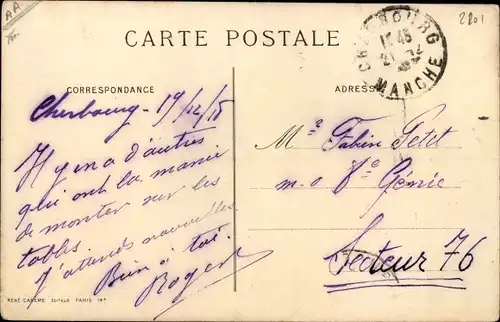 AA
2201
CARTE POSTALE
CHERBOURG
MANCHE
CORRESPONDANCE
ADRESSE
Cherbourg - 19/12/15
Il y en a d'autres
qui ont la manie
de monter sur les
tables.
J'attends nouvelles
Bien à toi.
Roger
Mr Fabien Petit
m-o 8e Génie
Secteur 76
RENÉ CASEME ÉDITEUR PARIS